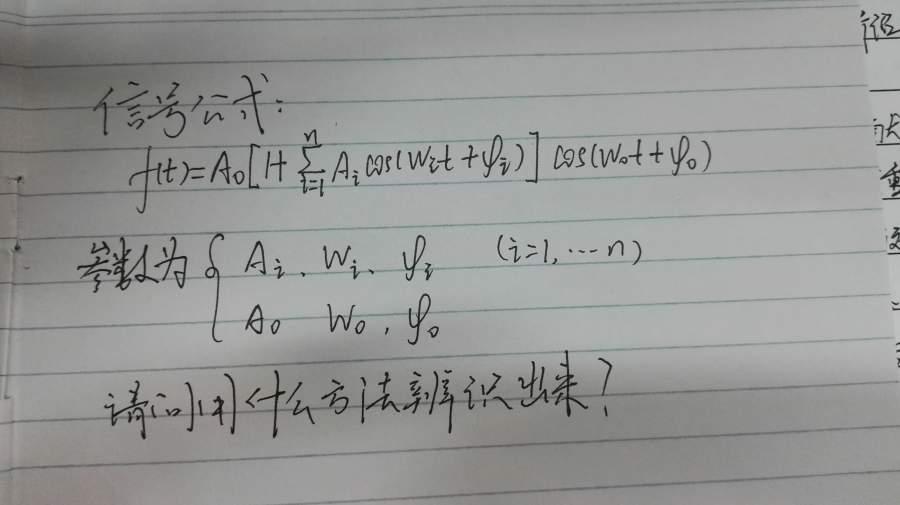 信号公式:
f(t)=A₀[1+∑ᵢ₌₁ⁿ Aᵢcos(Wᵢt+φᵢ)]cos(W₀t+φ₀)
参数为{ Aᵢ、Wᵢ、φᵢ (i=1,…n)
A₀ W₀、φ₀
请问用什么方法辨识出来?
重